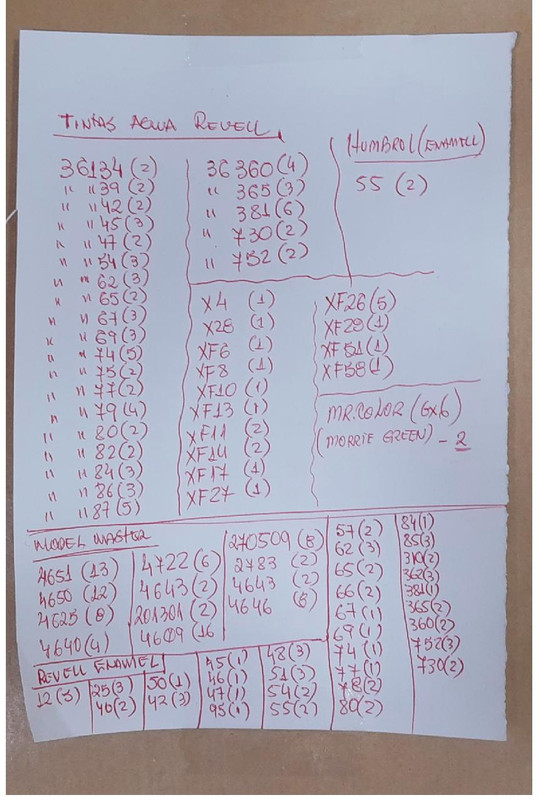 TINTAS AGUA REVELL
36134 (2)
" "39 (2)
" "42 (2)
" "45 (3)
" "47 (2)
" "54 (3)
" "62 (3)
" "65 (2)
" "67 (3)
" "69 (3)
" "74 (5)
" "75 (2)
" "77 (2)
" "79 (4)
" "80 (2)
" "82 (2)
" "84 (3)
" "86 (3)
" "87 (5)
36360 (4)
" 365 (3)
" 381 (6)
" 730 (2)
" 752 (2)
HUMBROL (ENAMELL)
55 (2)
X4 (1)
X28 (1)
XF6 (1)
XF8 (1)
XF10 (1)
XF13 (1)
XF11 (2)
XF14 (2)
XF17 (1)
XF27 (1)
XF26 (5)
XF29 (1)
XF51 (1)
XF58 (1)
MR.COLOR (6x6)
(MORRIE GREEN) - 2
MODEL MASTER
4651 (13)
4650 (12)
4625 (8)
4640 (4)
4722 (6)
4643 (2)
201301 (2)
4609 (16
270509 (8)
2783 (2)
4643 (2)
4646 (6)
REVELL ENAMEL
12 (5)
25 (3)
40 (2)
50 (1)
42 (3)
45 (1)
46 (1)
47 (1)
95 (1)
48 (3)
51 (3)
54 (2)
55 (2)
57 (2)
62 (3)
65 (2)
66 (2)
67 (1)
69 (1)
74 (1)
77 (1)
78 (2)
80 (2)
84 (1)
85 (3)
310 (2)
362 (3)
381 (1)
365 (2)
360 (2)
752 (3)
730 (2)